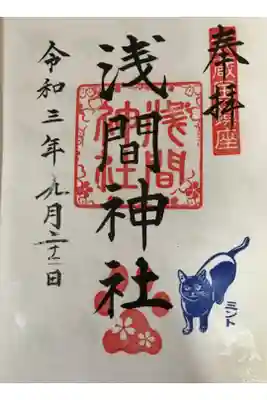 奉拝
浅間神社
浅間神社
令和三年九月日
ミント